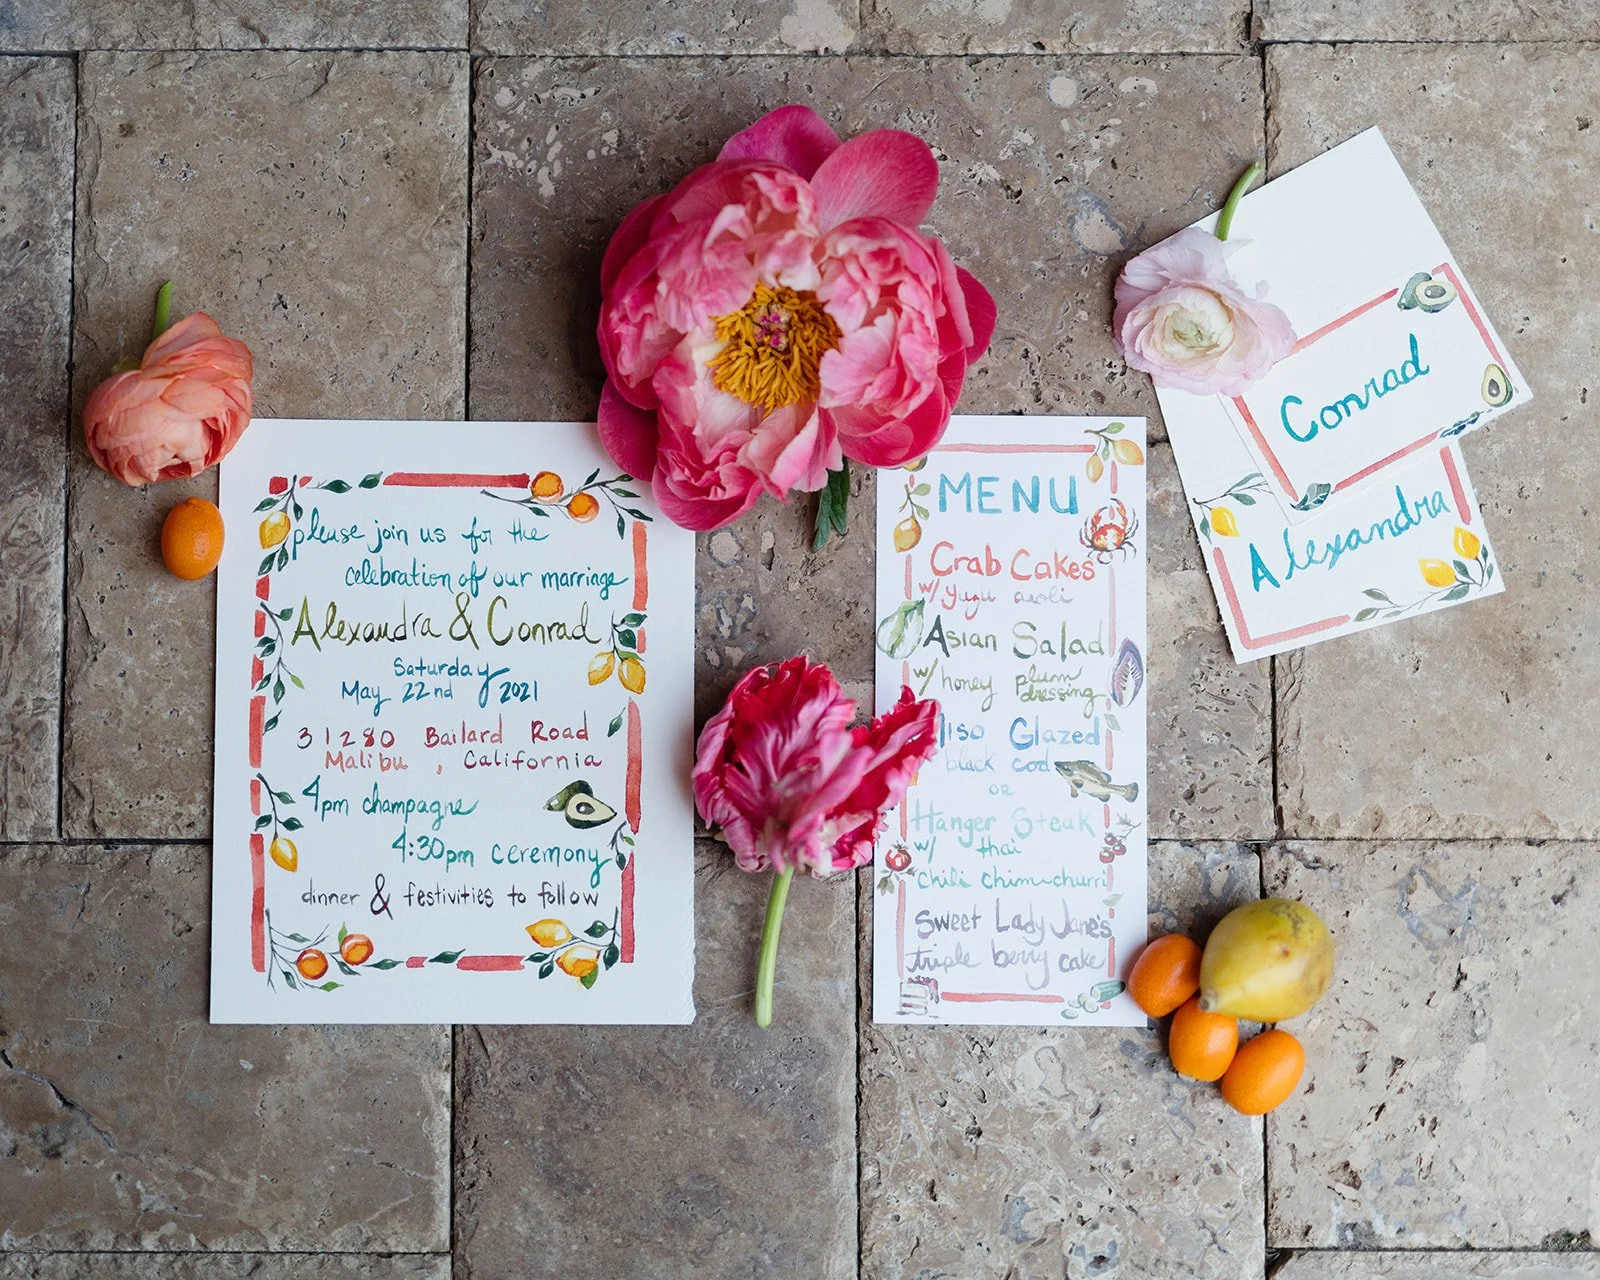 please join us for the
celebration of our marriage
Alexandra & Conrad
Saturday
May 22nd 2021
31280 Bailard Road
Malibu, California
4pm champagne
4:30pm ceremony
dinner & festivities to follow
MENU
Crab Cakes
w/ yuzu aioli
Asian Salad
w/ honey plum
dressing
Miso Glazed
black cod
or
Hanger Steak
w/ thai
chili chimichurri
Sweet Lady Jane's
triple berry cake
Conrad
Alexandra